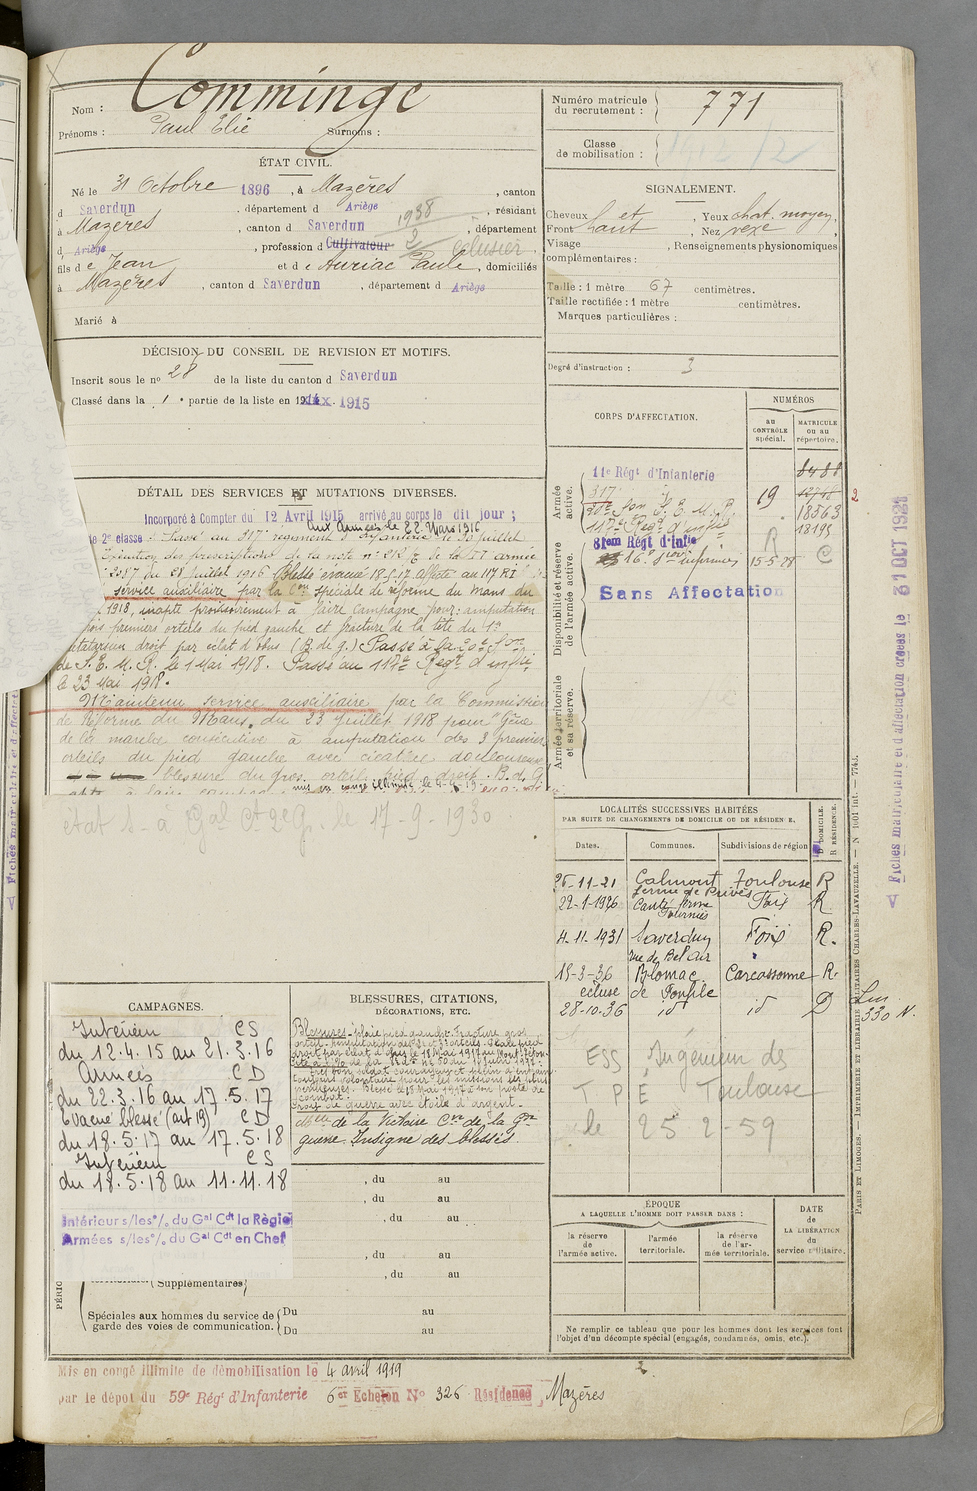 Nom : Comminge
Prénoms : Paul Elie Surnoms :
Numéro matricule du recrutement : 771
Classe de mobilisation :
ÉTAT CIVIL.
Né le 31 Octobre 1896, à Mazères, canton
d Saverdun, département d Ariège, résidant
à Mazères, canton d Saverdun, département
d Ariège, profession d Cultivateur éclusier
fils d e Jean et d e Auriac Paule, domiciliés
à Mazères, canton d Saverdun, département d Ariège
Marié à
1938
SIGNALEMENT.
Cheveux, Yeux chat. moyen,
Front haut, Nez vexe,
Visage, Renseignements physionomiques
complémentaires :
Taille : 1 mètre 67 centimètres.
Taille rectifiée : 1 mètre centimètres.
Marques particulières :
Degré d'instruction : 3
DÉCISION DU CONSEIL DE REVISION ET MOTIFS.
Inscrit sous le nº 28 de la liste du canton d Saverdun
Classé dans la 1 partie de la liste en 1915
DÉTAIL DES SERVICES ET MUTATIONS DIVERSES.
Incorporé à Compter du 12 Avril 1915 arrivé au corps le dit jour ;
Aux Armées le 22 Mars 1916
2e classe. Passé au 317e régiment d'infanterie le 30 juillet
exécution des prescriptions de la note nº 212 de la IVe armée
2057 du 28 juillet 1916 Blessé évacué 18.5.17 affecté au 117 RI
service auxiliaire par la Con spéciale de réforme du Mans du
1918, inapte provisoirement à faire campagne pour : amputation
trois premiers orteils du pied gauche et fracture de la tête du 1er
métatarsien droit par éclat d'obus (B. de g.) Passé à la 20e Son
de S. E. M. R. le 1 Mai 1918. Passé au 117e Regt d'infie
le 23 Mai 1918.
Maintenu service auxiliaire par la Commission
de Réforme du Mans, du 23 juillet 1918 pour "Gêne
de la marche consécutive à amputation des 3 premiers
orteils du pied gauche avec cicatrice douloureuse
blessure du gros orteil pied droit. B. d. G.
état s-a Gal Ct 2e G. le 17-9-1930
CORPS D'AFFECTATION.
NUMÉROS
au CONTRÔLE spécial.
MATRICULE ou au répertoire.
Armée active.
11e Régt d'Infanterie 8488
317 19 12718
20e Son S. E. M. R. 18363
117e Regt d'infie 18195
Disponibilité et réserve de l'armée active.
81em Régt d'Infie R
16e Son infirmiers 15-5-28 C
Sans Affectation
Armée territoriale et sa réserve.
2
Fiches matriculaire et d'affectation créées le 31 OCT 1921
LOCALITÉS SUCCESSIVES HABITÉES
PAR SUITE DE CHANGEMENTS DE DOMICILE OU DE RÉSIDENCE.
Dates. Communes. Subdivisions de région D DOMICILE. R RÉSIDENCE.
26-11-21 Calmont Toulouse R
ferme de Privés
22-1-1926 Canté ferme Foix R
4-11-1931 Saverdun Foix R.
rue de Bel air
15-3-36 Blomac Carcassonne R.
écluse de Fonfile
28-10-36 id id D
ESS Ingenieur des
T P E Toulouse
le 25 2-59
CAMPAGNES.
Intérieur CS
du 12.4.15 au 21.3.16
Armées CD
du 22.3.16 au 17.5.17
Evacué blessé (art 19) CD
du 18.5.17 au 17.5.18
Intérieur CS
du 18.5.18 au 11.11.18
Intérieur s/les º/. du Gal Cdt la Région
Armées s/les º/. du Gal Cdt en Chef
BLESSURES, CITATIONS,
DÉCORATIONS, ETC.
Blessures : plaie pied gauche. Fracture gros
orteil. Amputation des 2e et 3e orteils.
droit par éclat d'obus le 18 Mai 1917 au Mont
très bon soldat courageux et plein d'entrain
toujours volontaire pour les missions les plus
périlleuses. Blessé le 18 Mai 1917 à son poste de
combat.
Croix de guerre avec étoile d'argent.
Mlle de la Victoire Cve de la Gde
guerre. Insigne des blessés.
, du au
, du au
, du au
, du au
, du au
Supplémentaires
Spéciales aux hommes du service de garde des voies de communication. Du au
Du au
ÉPOQUE
A LAQUELLE L'HOMME DOIT PASSER DANS :
la réserve de l'armée active.
l'armée territoriale.
la réserve de l'armée territoriale.
DATE de LA LIBÉRATION du service militaire.
Ne remplir ce tableau que pour les hommes dont les services font
l'objet d'un décompte spécial (engagés, condamnés, omis, etc.).
PARIS ET LIMOGES. — IMPRIMERIE ET LIBRAIRIE MILITAIRES CHARLES-LAVAUZELLE. — N 1001 int. — 774J.
Mis en congé illimité de démobilisation le 4 avril 1919
par le dépôt du 59e Rég d'Infanterie 6er Echelon Nº 326 Résidence Mazères